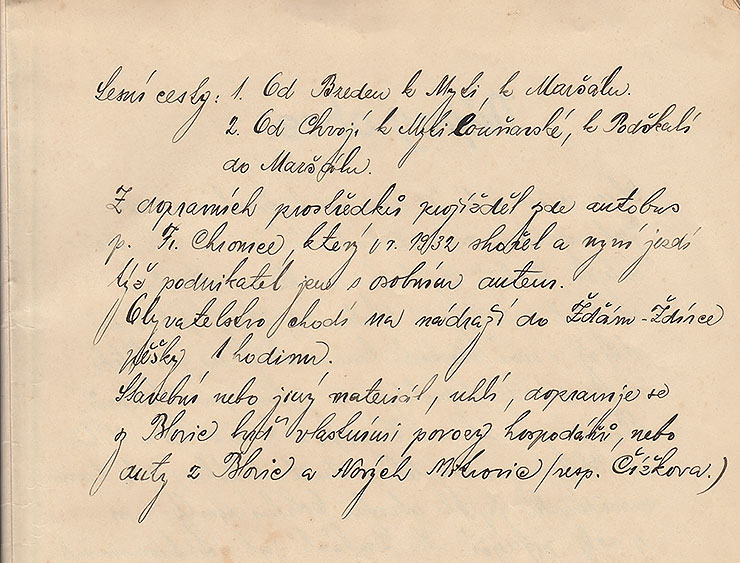 Lesní cesty: 1. Od Bzeden k Myti, k Maršálu.
2. Od Chvojí k Myti Couňarské, k Podškalí
do Maršálu.
Z dopravních prostředků projížděl zde autobus
p. Fr. Chromce, který v r. 1932 shořel a nyní jezdí
týž podnikatel jen s osobním autem.
Obyvatelstvo chodí na nádraží do Ždám-Ždírce
pěšky 1 hodinu.
Stavební nebo jiný materiál, uhlí, dopravuje se
z Blovic buď vlastními povozy hospodářů, nebo
auty z Blovic a Nových Mitrovic /resp. Čížkova.)